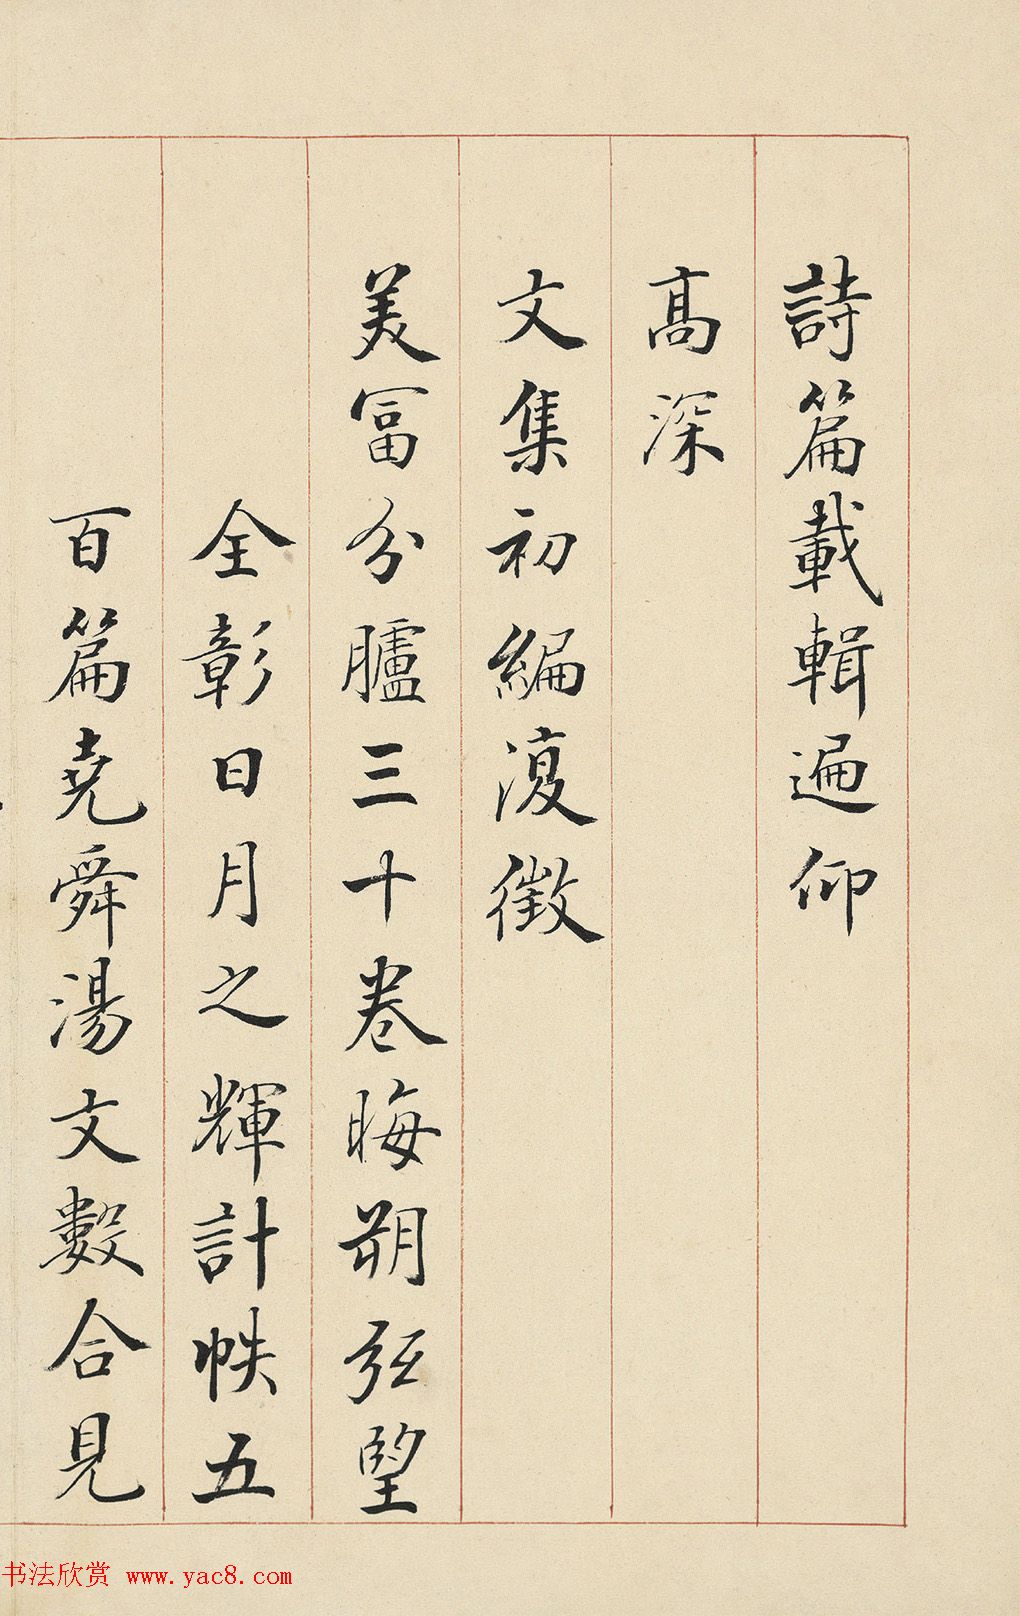 詩篇載輯遍仰
高深
文集初編復徵
美富分臚三十卷晦朔弦望
全彰日月之輝計帙五
百篇堯舜湯文數合見
书法欣赏 www.yac8.com